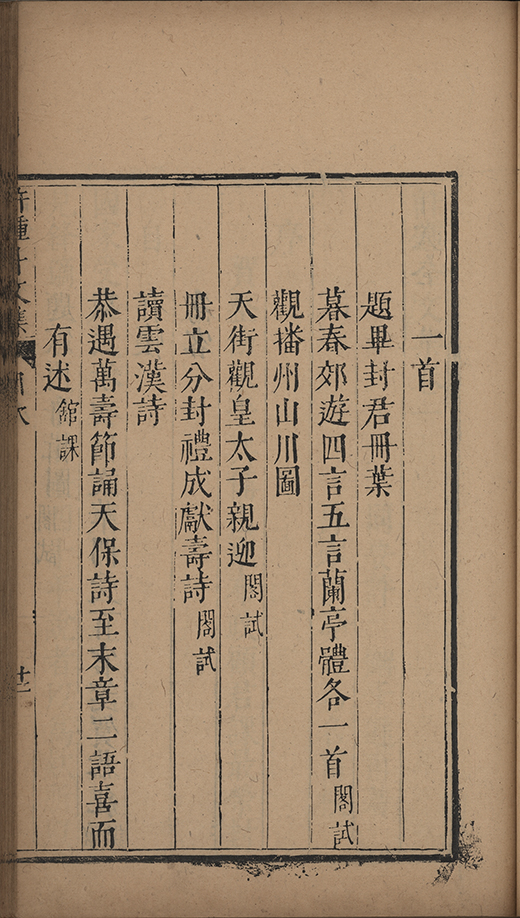 一首
題畢封君冊葉
暮春郊遊四言五言蘭亭體各一首 閣試
觀播州山川圖
天街觀皇太子親迎 閣試
冊立分封禮成獻壽詩 閣試
讀雲漢詩
恭遇萬壽節誦天保詩至末章二語喜而
有述 舘課
許鍾斗文集 目次